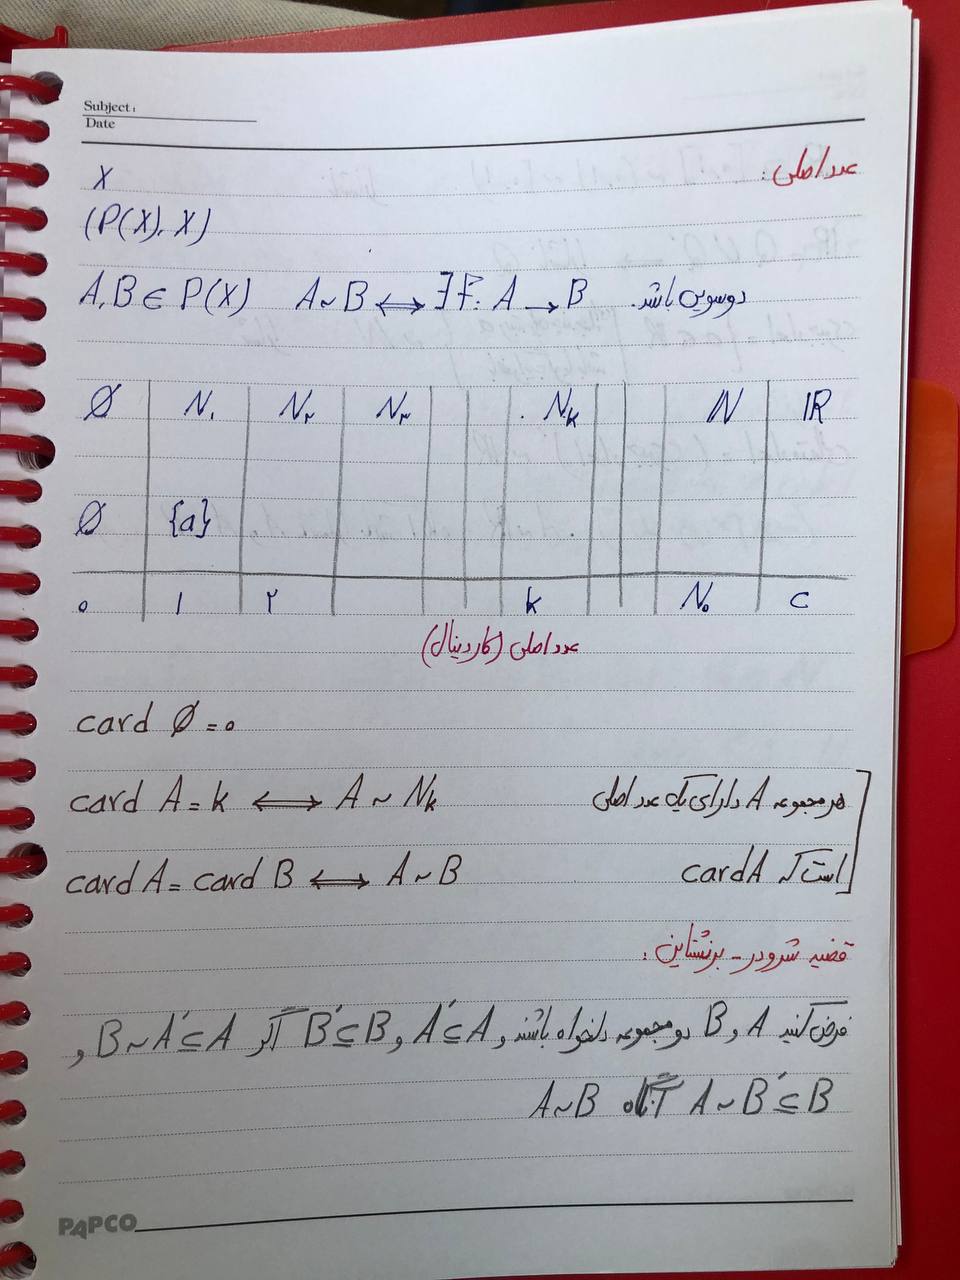 Subject:
Date
عدد اصلی:
X
(P(X), X)
A, B ∈ P(X) A ~ B ⟷ ∃ F: A → B دوسویی باشد.
∅ N₁ N₂ N₃ N_k ℕ ℝ
∅ {a}
۰ ۱ ۲ k N₀ C
عدد اصلی (کاردینال)
card ∅ = ۰
card A = k ⟺ A ~ N_k هر مجموعه A دارای یک عدد اصلی
card A = card B ⟺ A ~ B است که card A
قضیه شرودر - برنشتاین:
فرض کنید A و B دو مجموعه دلخواه باشند و A′ ⊆ A و B′ ⊆ B اگر B ~ A′ ⊆ A و
A ~ B′ ⊆ B آنگاه A ~ B
PAPCO